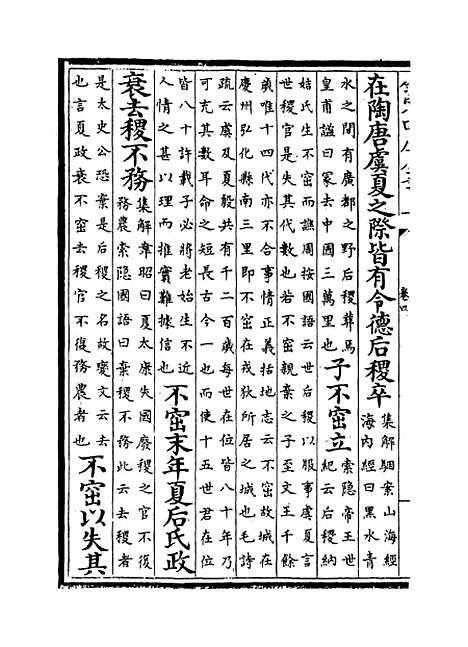 在陶唐虞夏之際皆有令德后稷卒
集解駰案山海經
海內經曰黑水青
水之間有廣都之野后稷葬焉
皇甫謐曰冢去中國三萬里也
子不窋立
索隐帝王世
紀云后稷納
姞氏生不窋而譙周按國語云世后稷以服事虞夏言
世稷官是失其代數也若不窋親棄之子至文王千餘
歲唯十四代亦不合事情正義括地志云不窋故城在
慶州弘化縣南三里即不窋在戎狄所居之城也毛詩
疏云虞及夏殷共有千二百歲每世在位皆八十年乃
可充其數耳命之短長古今一也而使十五世君在位
皆八十許載子必將老始生不近
人情之甚以理而推實難據信也
不窋末年夏后氏政
衰去稷不務
集解韋昭曰夏太康失國廢稷之官不復
務農索隐國語曰棄稷不務此云去稷者
是太史公恐棄是后稷之名故變文云去
也言夏政衰不窋去稷官不復務農者也
不窋以失其
卷四